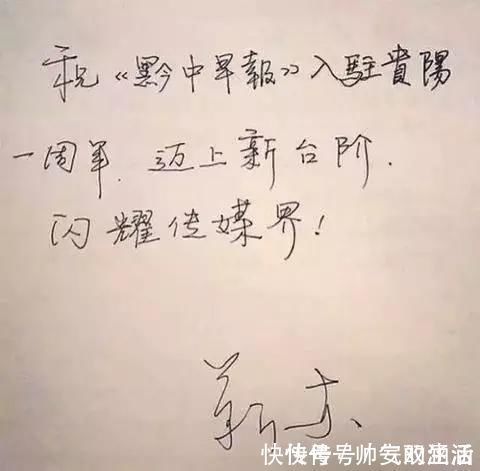 祝《黔中早報》入駐貴陽
一周年，迈上新台阶．
闪耀传媒界！
靳东
快传号